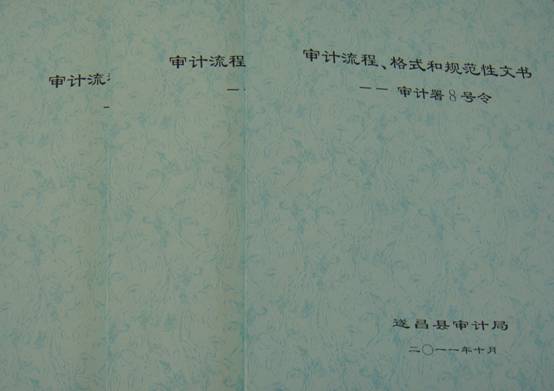 审计流
审计流程
审计流程、格式和规范性文书
—— 审计署8号令
遂昌县审计局
二〇一一年十月